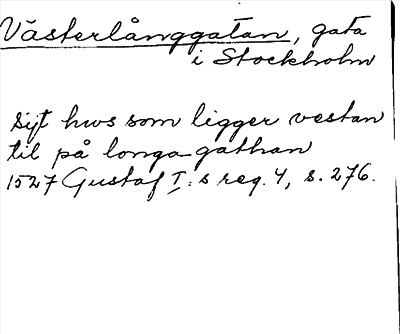 Västerlånggatan, gata
i Stockholm
sijt hws som ligger vestan
til på longa gathan
1527 Gustaf I:s reg. 4, s. 276.